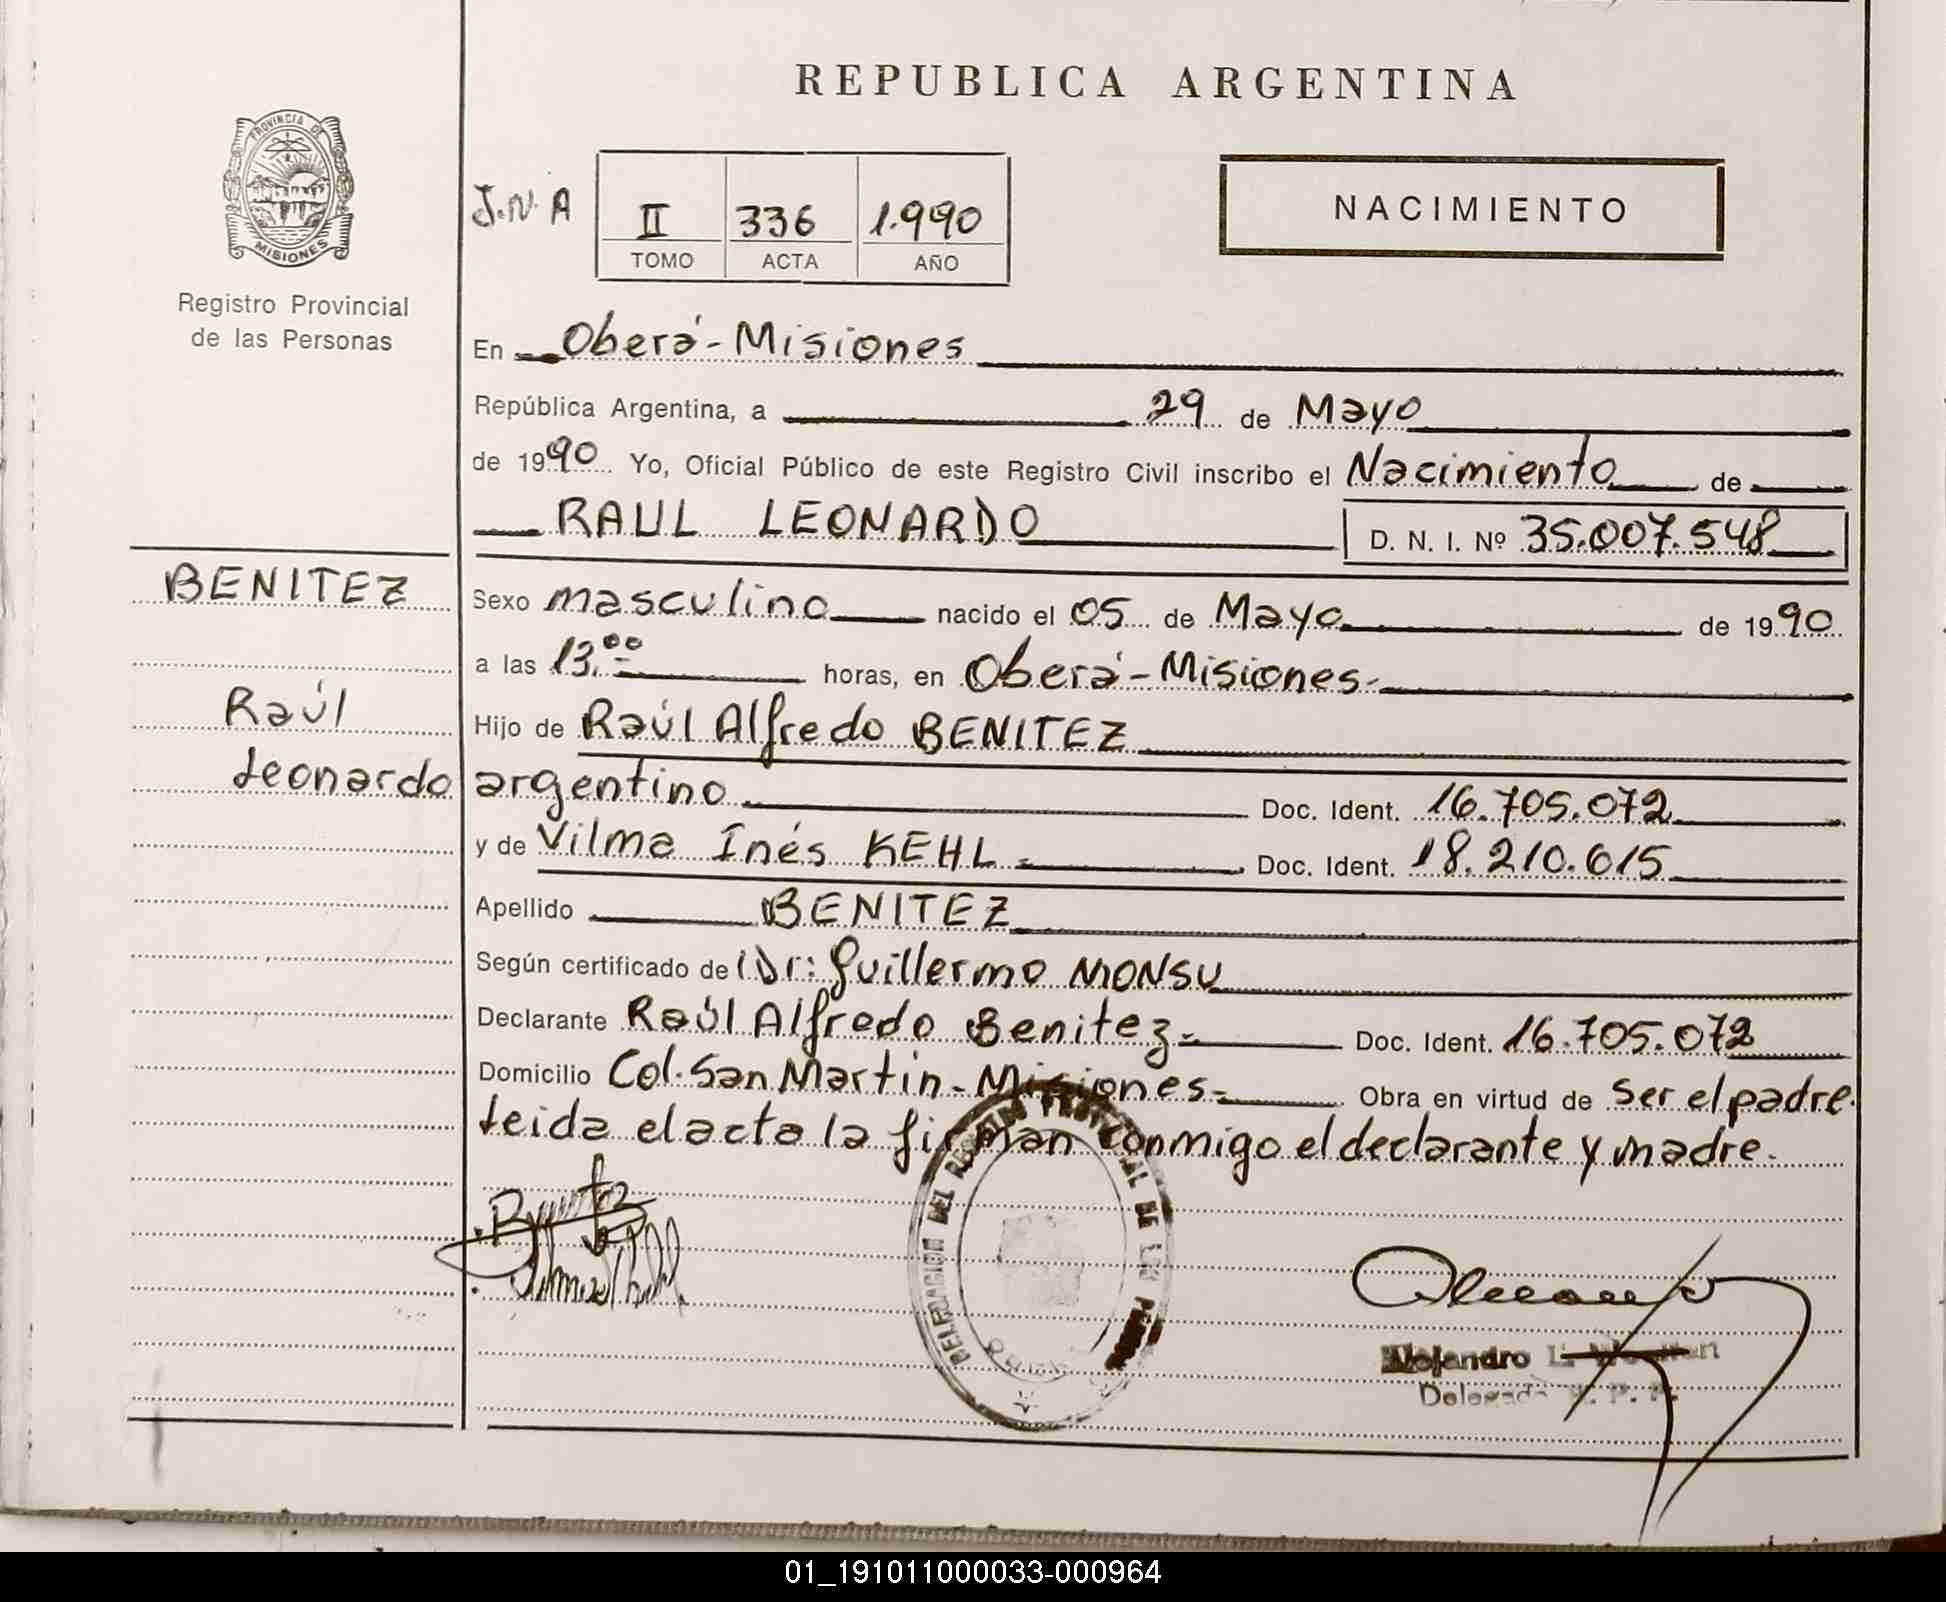 REPUBLICA ARGENTINA
PROVINCIA DE
MISIONES
Registro Provincial
de las Personas
J.N.A
II 336 1.990
TOMO ACTA AÑO
NACIMIENTO
En Oberá-Misiones
República Argentina, a 29 de Mayo
de 1990 Yo, Oficial Público de este Registro Civil inscribo el Nacimiento de
RAUL LEONARDO D. N. I. Nº 35.007.548
BENITEZ
Raúl
Leonardo
Sexo masculino nacido el 05 de Mayo de 1990
a las 13.00 horas, en Oberá-Misiones-
Hijo de Raúl Alfredo BENITEZ
argentino Doc. Ident. 16.705.072
y de Vilma Inés KEHL Doc. Ident. 18.210.615
Apellido BENITEZ
Según certificado de Dr: Guillermo MONSU
Declarante Raúl Alfredo Benitez- Doc. Ident. 16.705.072
Domicilio Col. San Martin-Misiones- Obra en virtud de ser el padre.
Leida el acta la firman conmigo el declarante y madre.
DELEGACION DEL REGISTRO PROVINCIAL DE LAS
Alejandro
Delegado
01_191011000033-000964